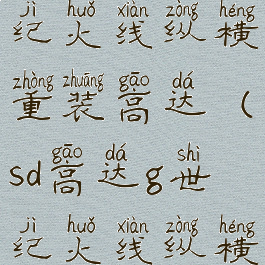 jì huǒ xiàn zòng héng
纪火线纵横
zhòng zhuāng gāo dá
重装高达（
gāo dá shì
sd高达g世
jì huǒ xiàn zòng héng
纪火线纵横